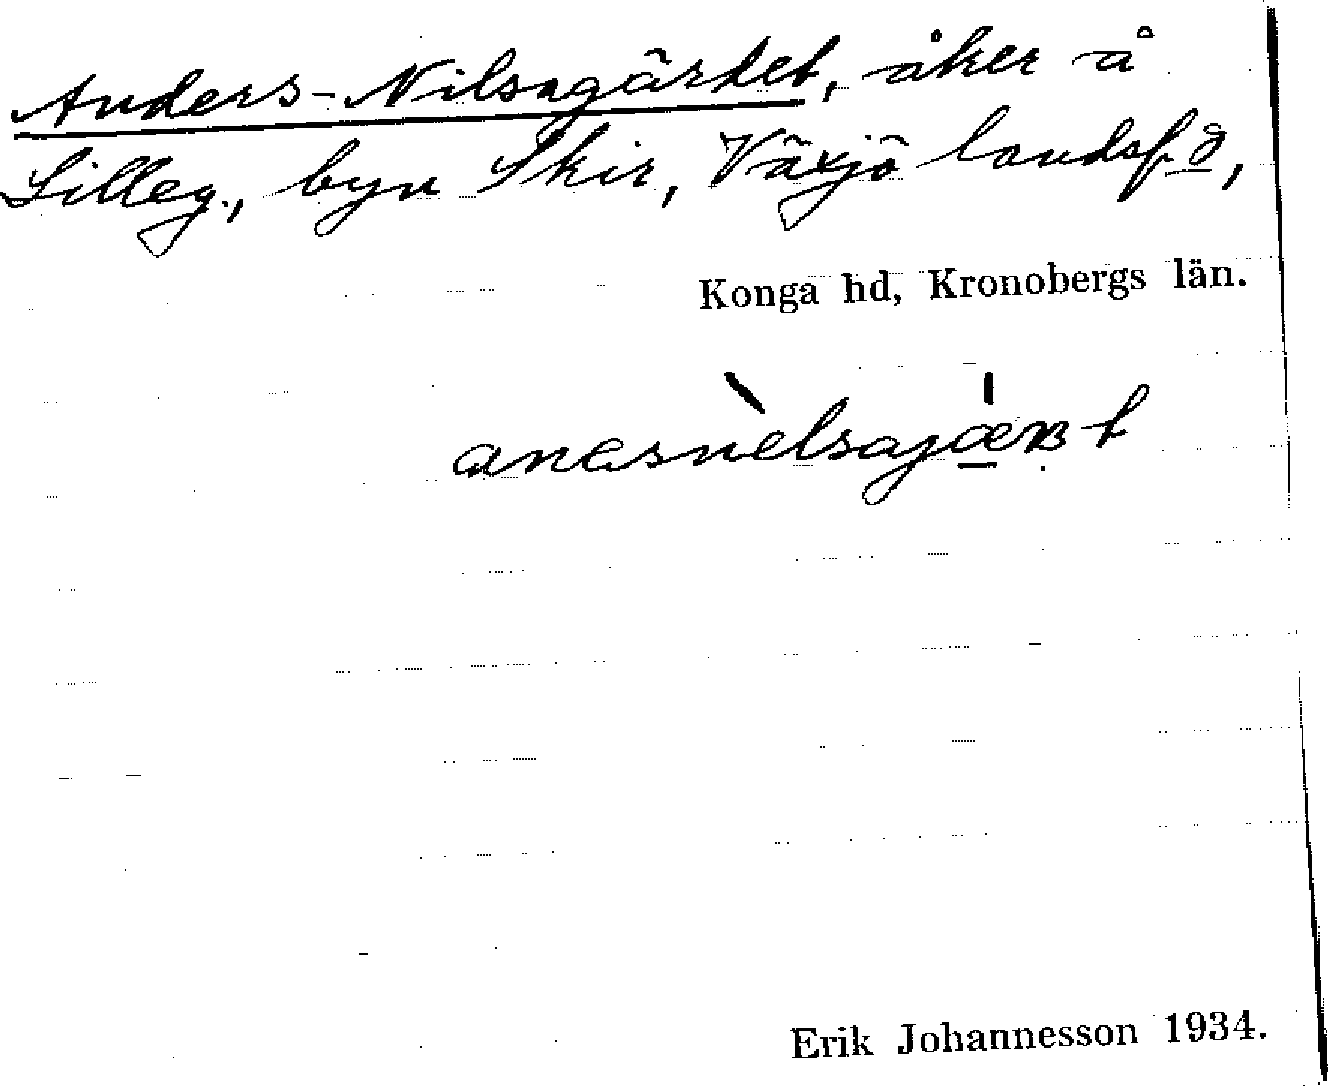 Anders-Nilsagärdet, åker å
Lilleg., byn Skir, Växjö landsf-g,
Konga hd, Kronobergs län.
anɛsnèlsajæ̠ʀt
Erik Johannesson 1934.